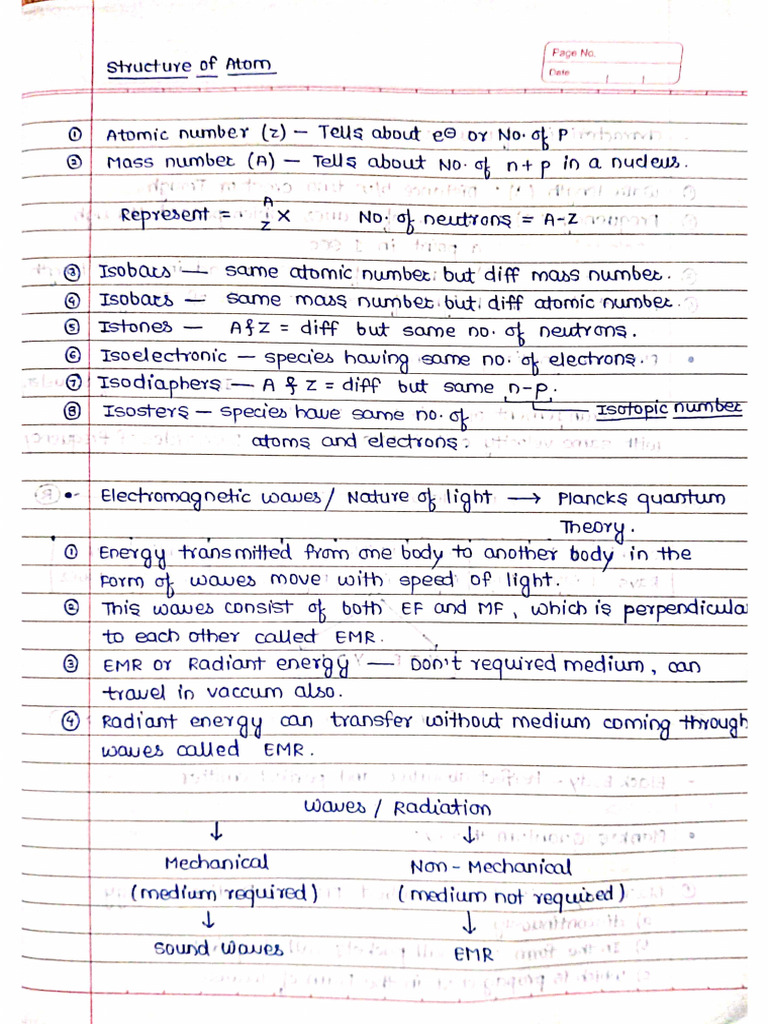 Structure of Atom
Page No.
Date
① Atomic number (z) — Tells about e⊖ or No. of P
② Mass number (A) — Tells about No. of n+p in a nucleus.
Represent = A/Z X No. of neutrons = A-Z
③ Isobars — same atomic number but diff mass number.
④ Isobars — same mass number but diff atomic number.
⑤ Istones — A & Z = diff but same no. of neutrons.
⑥ Isoelectronic — species having same no. of electrons.
⑦ Isodiaphers — A & Z = diff but same n-p.
⑧ Isosters — species have same no. of Isotopic number
atoms and electrons.
• Electromagnetic waves / Nature of light → Plancks quantum
Theory.
① Energy transmitted from one body to another body in the
form of waves move with speed of light.
② This waves consist of both EF and MF, which is perpendicular
to each other called EMR.
③ EMR or Radiant energy — Don't required medium, can
travel in vaccum also.
④ Radiant energy can transfer without medium coming through
waves called EMR.
Waves / Radiation
↓ ↓
Mechanical Non-Mechanical
(medium required) (medium not required)
↓ ↓
Sound waves EMR